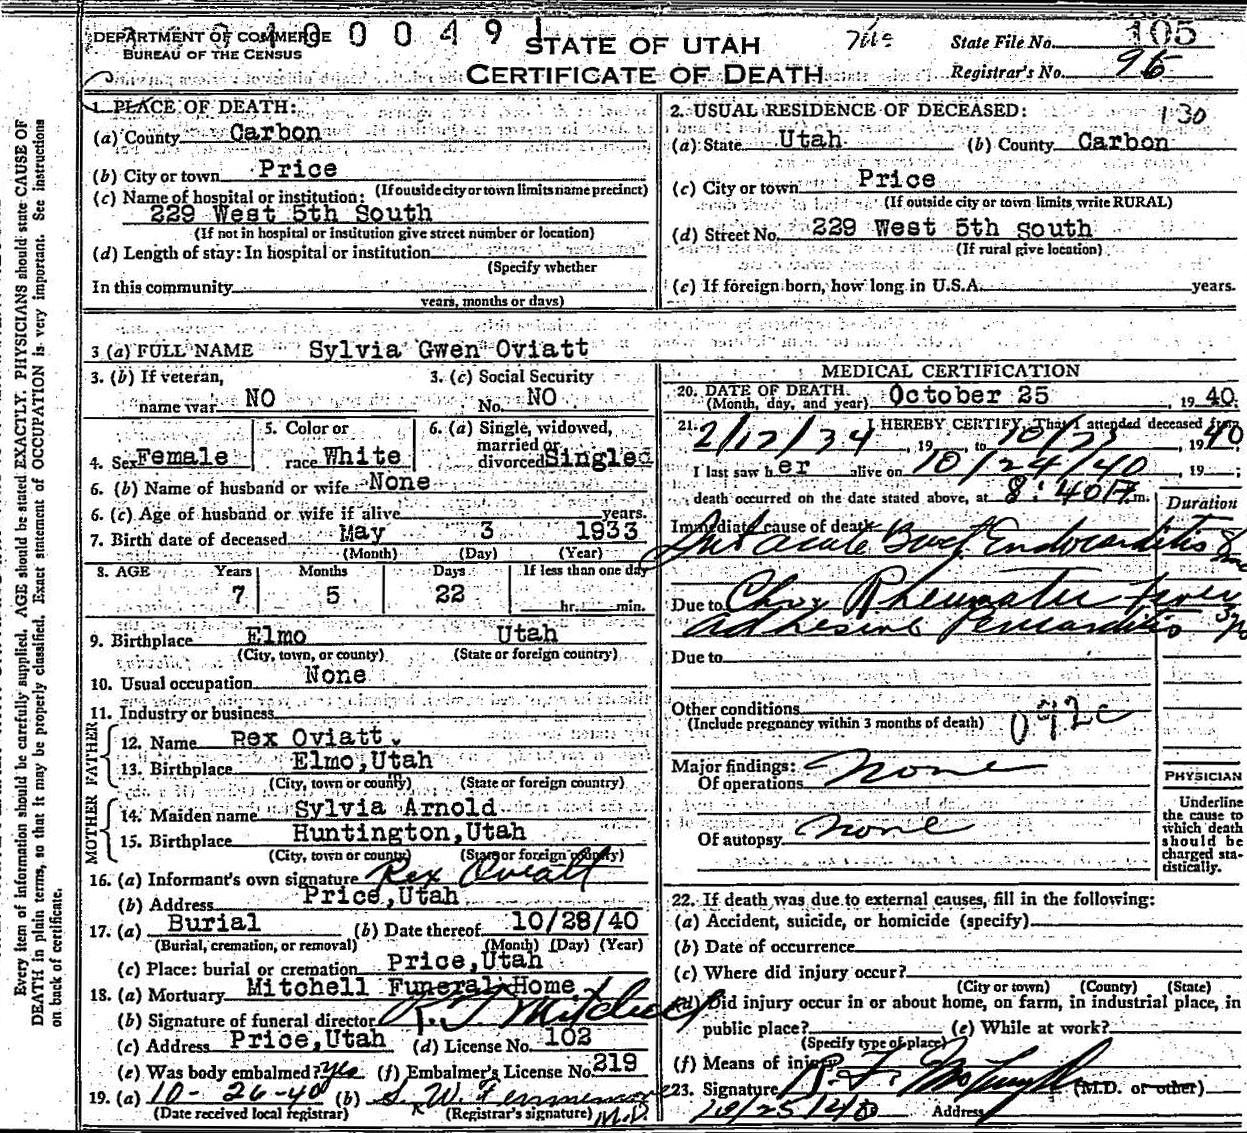 DEPARTMENT OF COMMERCE
BUREAU OF THE CENSUS
100491
STATE OF UTAH
CERTIFICATE OF DEATH
State File No. 105
Registrar's No. 95
1. PLACE OF DEATH:
(a) County Carbon
(b) City or town Price
(If outside city or town limits name precinct)
(c) Name of hospital or institution:
229 West 5th South
(If not in hospital or insitution give street number or location)
(d) Length of stay: In hospital or institution
(Specify whether
In this community
years, months or days)
2. USUAL RESIDENCE OF DECEASED: 130
(a) State Utah (b) County Carbon
(c) City or town Price
(If outside city or town limits write RURAL)
(d) Street No. 229 West 5th South
(If rural give location)
(e) If foreign born, how long in U.S.A. years.
3 (a) FULL NAME Sylvia Gwen Oviatt
3. (b) If veteran, name war NO
3. (c) Social Security No. NO
4. Sex Female
5. Color or race White
6. (a) Single, widowed, married or divorced Singled
6. (b) Name of husband or wife None
6. (c) Age of husband or wife if alive years.
7. Birth date of deceased May 3 1933
(Month) (Day) (Year)
8. AGE Years Months Days If less than one day
7 5 22 hr. min.
9. Birthplace Elmo Utah
(City, town, or county) (State or foreign country)
10. Usual occupation None
11. Industry or business
FATHER
12. Name Rex Oviatt.
13. Birthplace Elmo,Utah
(City, town or county) (State or foreign country)
MOTHER
14. Maiden name Sylvia Arnold
15. Birthplace Huntington,Utah
(City, town or county) (State or foreign country)
16. (a) Informant's own signature Rex Oviatt
(b) Address Price,Utah
17. (a) Burial (b) Date thereof 10/28/40
(Burial, cremation, or removal) (Month) (Day) (Year)
(c) Place: burial or cremation Price,Utah
18. (a) Mortuary Mitchell Funeral Home
(b) Signature of funeral director Mitchell
(c) Address Price,Utah (d) License No. 102
(e) Was body embalmed? yes (f) Embalmer's License No. 219
19. (a) 10-26-40 (b)
(Date received local registrar) (Registrar's signature) M.D.
MEDICAL CERTIFICATION
20. DATE OF DEATH October 25, 1940.
(Month, day, and year)
21. I HEREBY CERTIFY, That I attended deceased from
2/12/34, 19 to 10/25 1940
I last saw her alive on 10/24/40 19 ;
death occurred on the date stated above, at 8:40 m.
Duration
Immediate cause of death
Subacute Bact. Endocarditis 8
Due to Rheumatic fever
Adhesive Pericarditis 3
Due to
Other conditions
(Include pregnancy within 3 months of death) 092c
Major findings:
Of operations none
Of autopsy none
PHYSICIAN
Underline
the cause to
which death
should be
charged sta-
tistically.
22. If death was due to external causes, fill in the following:
(a) Accident, suicide, or homicide (specify)
(b) Date of occurrence
(c) Where did injury occur?
(City or town) (County) (State)
(d) Did injury occur in or about home, on farm, in industrial place, in
public place? (e) While at work?
(Specify type of place)
(f) Means of injury
23. Signature (M.D. or other)
10/25/40 Address
Every item of information should be carefully supplied. AGE should be stated EXACTLY. PHYSICIANS should state CAUSE OF
DEATH in plain terms, so that it may be properly classified. Exact statement of OCCUPATION is very important. See instructions
on back of certificate.